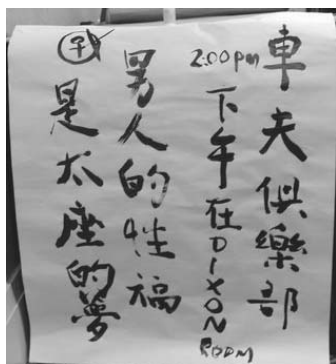 車夫俱樂部
2:00pm 下午在DIXON ROOM
男人的性福
是太座的夢